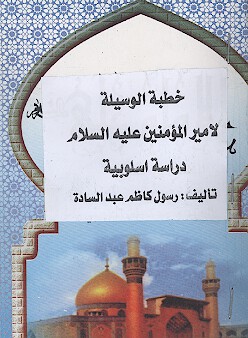 خطبة الوسيلة
لامير المؤمنين عليه السلام
دراسة اسلوبية
تأليف: رسول كاظم عبد السادة